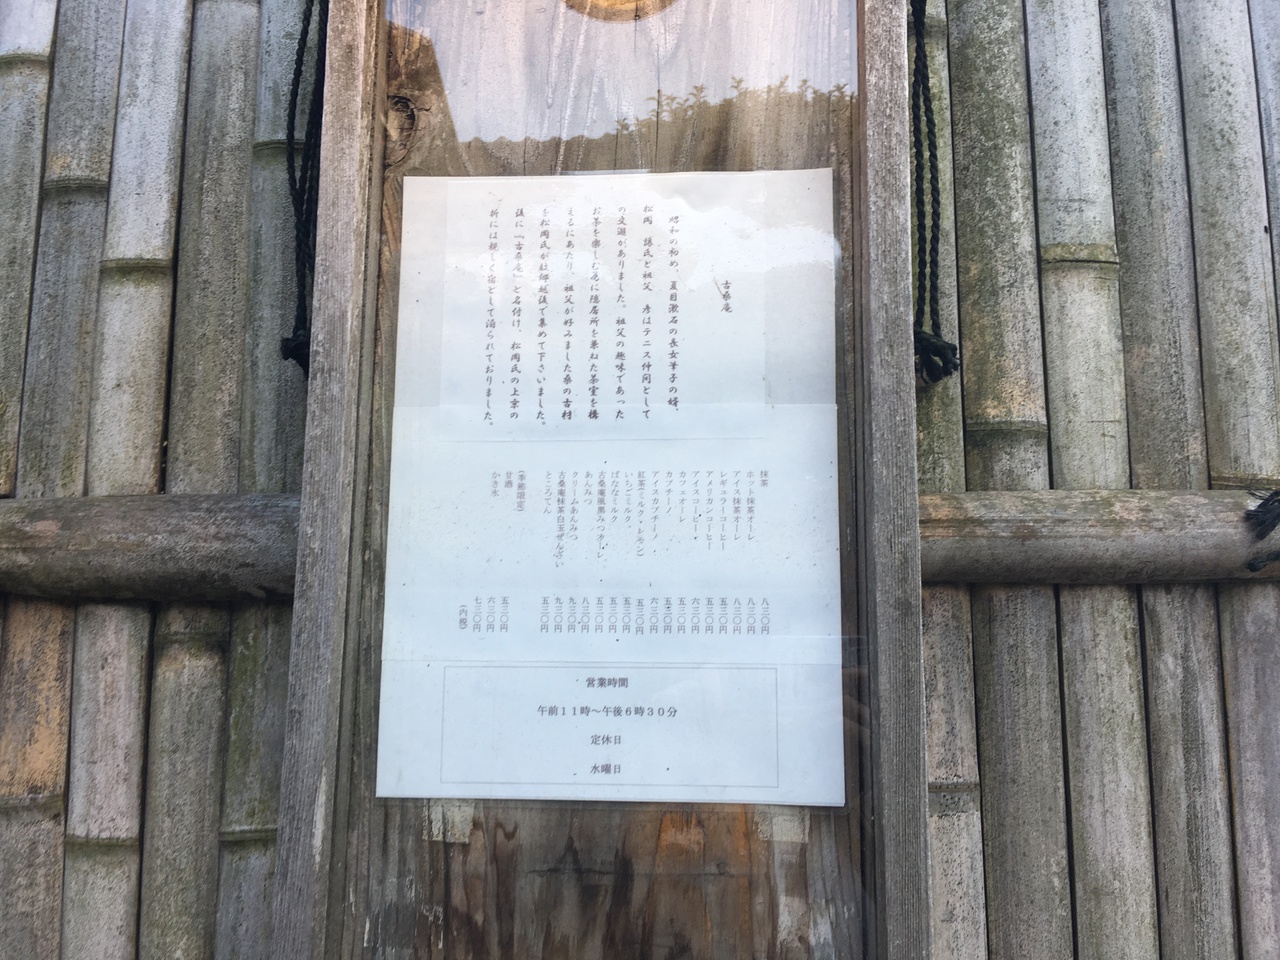 古桑庵
昭和の初め、夏目漱石の長女筆子の婿、
松岡 譲氏と祖父 彦はテニス仲間として
の交遊がありました。祖父の趣味であった
お茶を楽しむ為に隠居所を兼ねた茶室を構
えるにあたり、祖父が好みました桑の古材
を松岡氏が社郷越後で集めて下さいました。
後に「古桑庵」と名付け、松岡氏の上京の
折には親しく宿として泊られておりました。
抹茶 八三〇円
ホット抹茶オーレ 八三〇円
アイス抹茶オーレ 八三〇円
レギュラーコーヒー 五三〇円
アメリカンコーヒー 五三〇円
アイスコーヒー 六三〇円
カフェオーレ 五三〇円
カプチーノ 五三〇円
アイスカプチーノ 六三〇円
紅茶(ミルク・レモン) 五三〇円
いちごミルク 五三〇円
ばななミルク 五三〇円
古桑庵風黒みつオーレ 五三〇円
あんみつ 八三〇円
クリームあんみつ 九三〇円
古桑庵抹茶白玉ぜんざい 九三〇円
ところてん 五三〇円
(季節限定)
甘酒 五三〇円
かき氷 六三〇円
七三〇円
(内税)
営業時間
午前11時~午後6時30分
定休日
水曜日